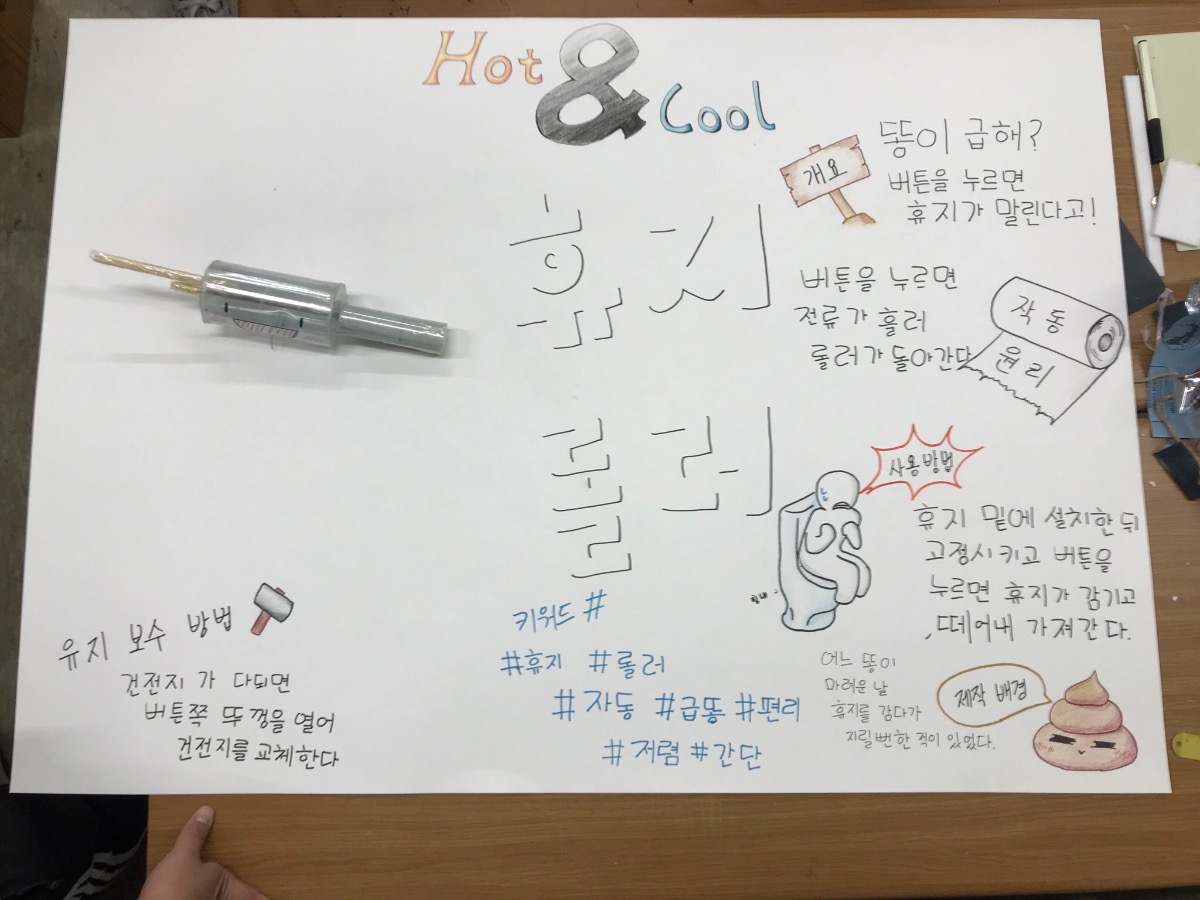 Hot & Cool
휴지
롤러
개요
똥이 급해?
버튼을 누르면
휴지가 말린다고!
작동
원리
버튼을 누르면
전류가 흘러
롤러가 돌아간다
사용방법
휴지 밑에 설치한 뒤
고정시키고 버튼을
누르면 휴지가 감기고
,떼어내 가져간다.
제작 배경
어느 똥이
마려운 날
휴지를 감다가
지릴뻔한 적이 있었다.
키워드 #
#휴지 #롤러
#자동 #급똥 #편리
#저렴 #간단
유지 보수 방법
건전지 가 다되면
버튼쪽 뚜껑을 열어
건전지를 교체한다